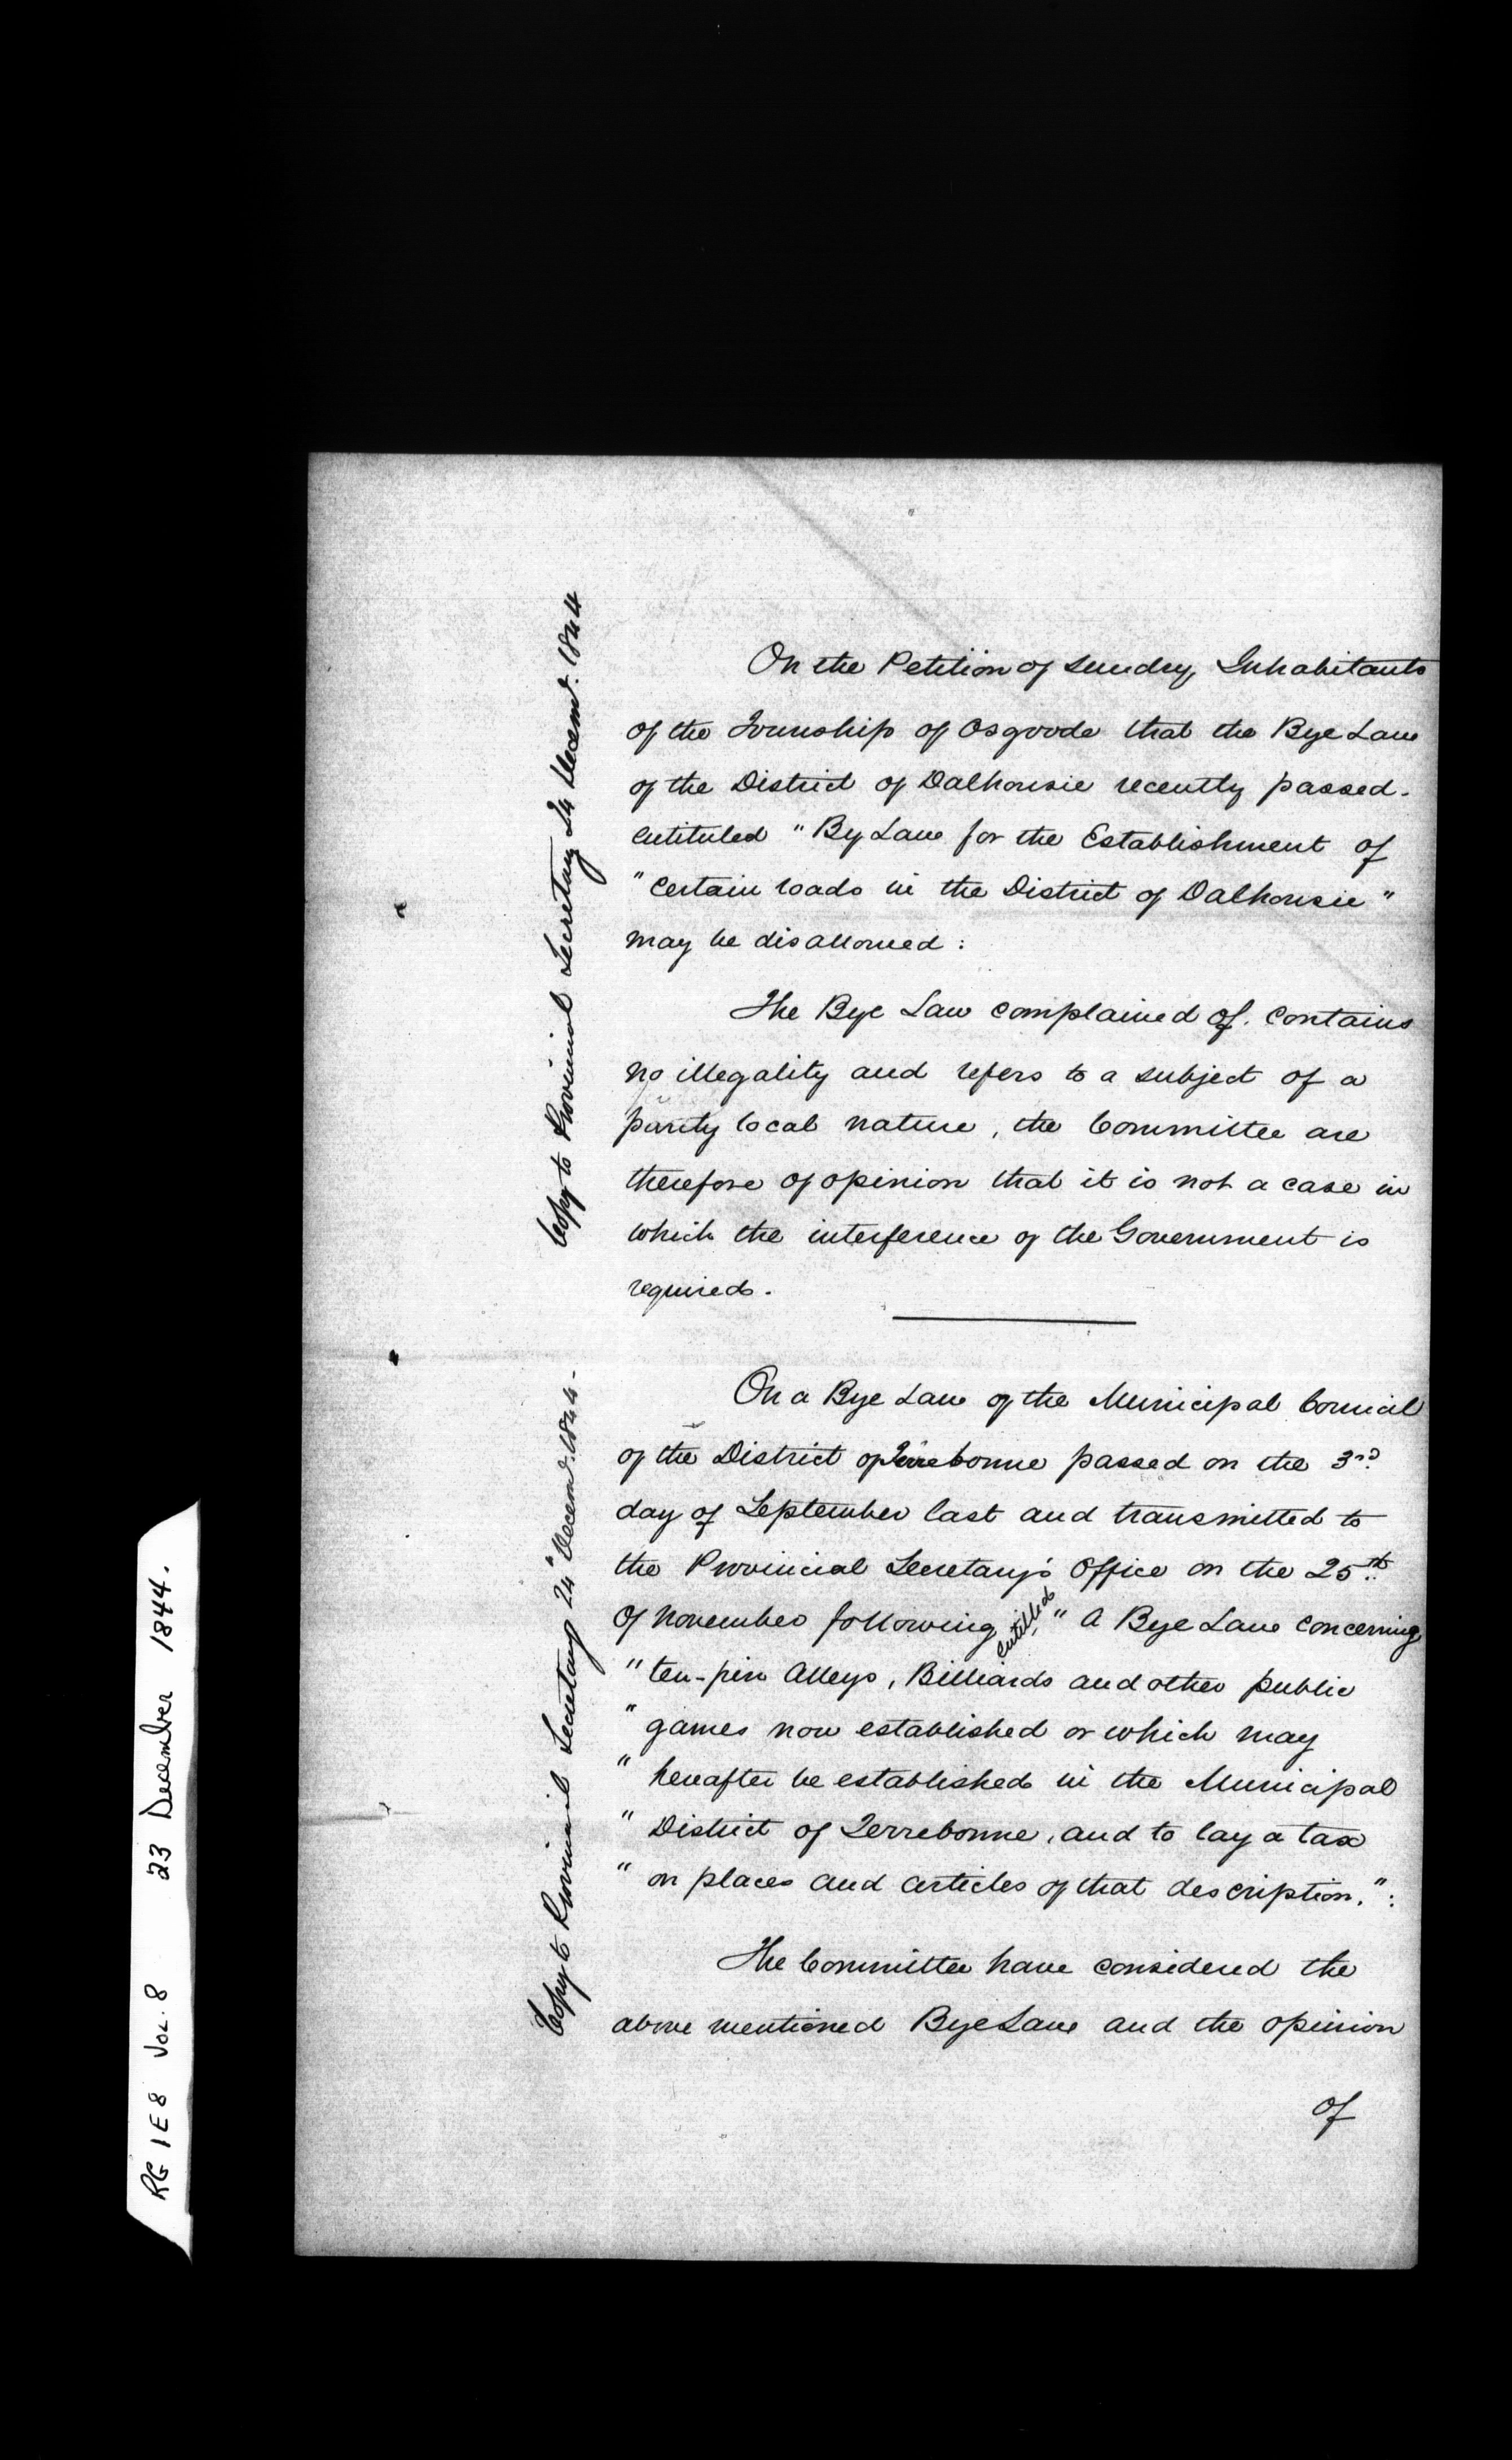 On the Petition of sundry Inhabitants
of the Township of Osgoode that the Bye Law
of the District of Dalhousie recently passed.
entituled "By Law for the Establishment of
"certain roads in the District of Dalhousie"
may be disallowed:
The Bye Law complained of. contains
no illegality and refers to a subject of a
purely local nature, the Committee are
therefore of opinion that it is not a case in
which the interference of the Government is
required.
Copy to Provincial Secretary 24 Decemr. 1844
On a Bye Law of the Municipal Council
of the District of Terrebonne passed on the 3rd
day of September last and transmitted to
the Provincial Secretary's Office on the 25th
of November following entitled "A Bye Law concerning
"ten-pin Alleys, Billiards and other public
"games now established or which may
"hereafter be established in the Municipal
"District of Terrebonne, and to lay a tax
"on places and articles of that description.":
The Committee have considered the
above mentioned Bye Law and the opinion
of
Copy to Provincial Secretary 24" Decemr. 1844-
RG 1 E 8 Vol. 8 23 December 1844.